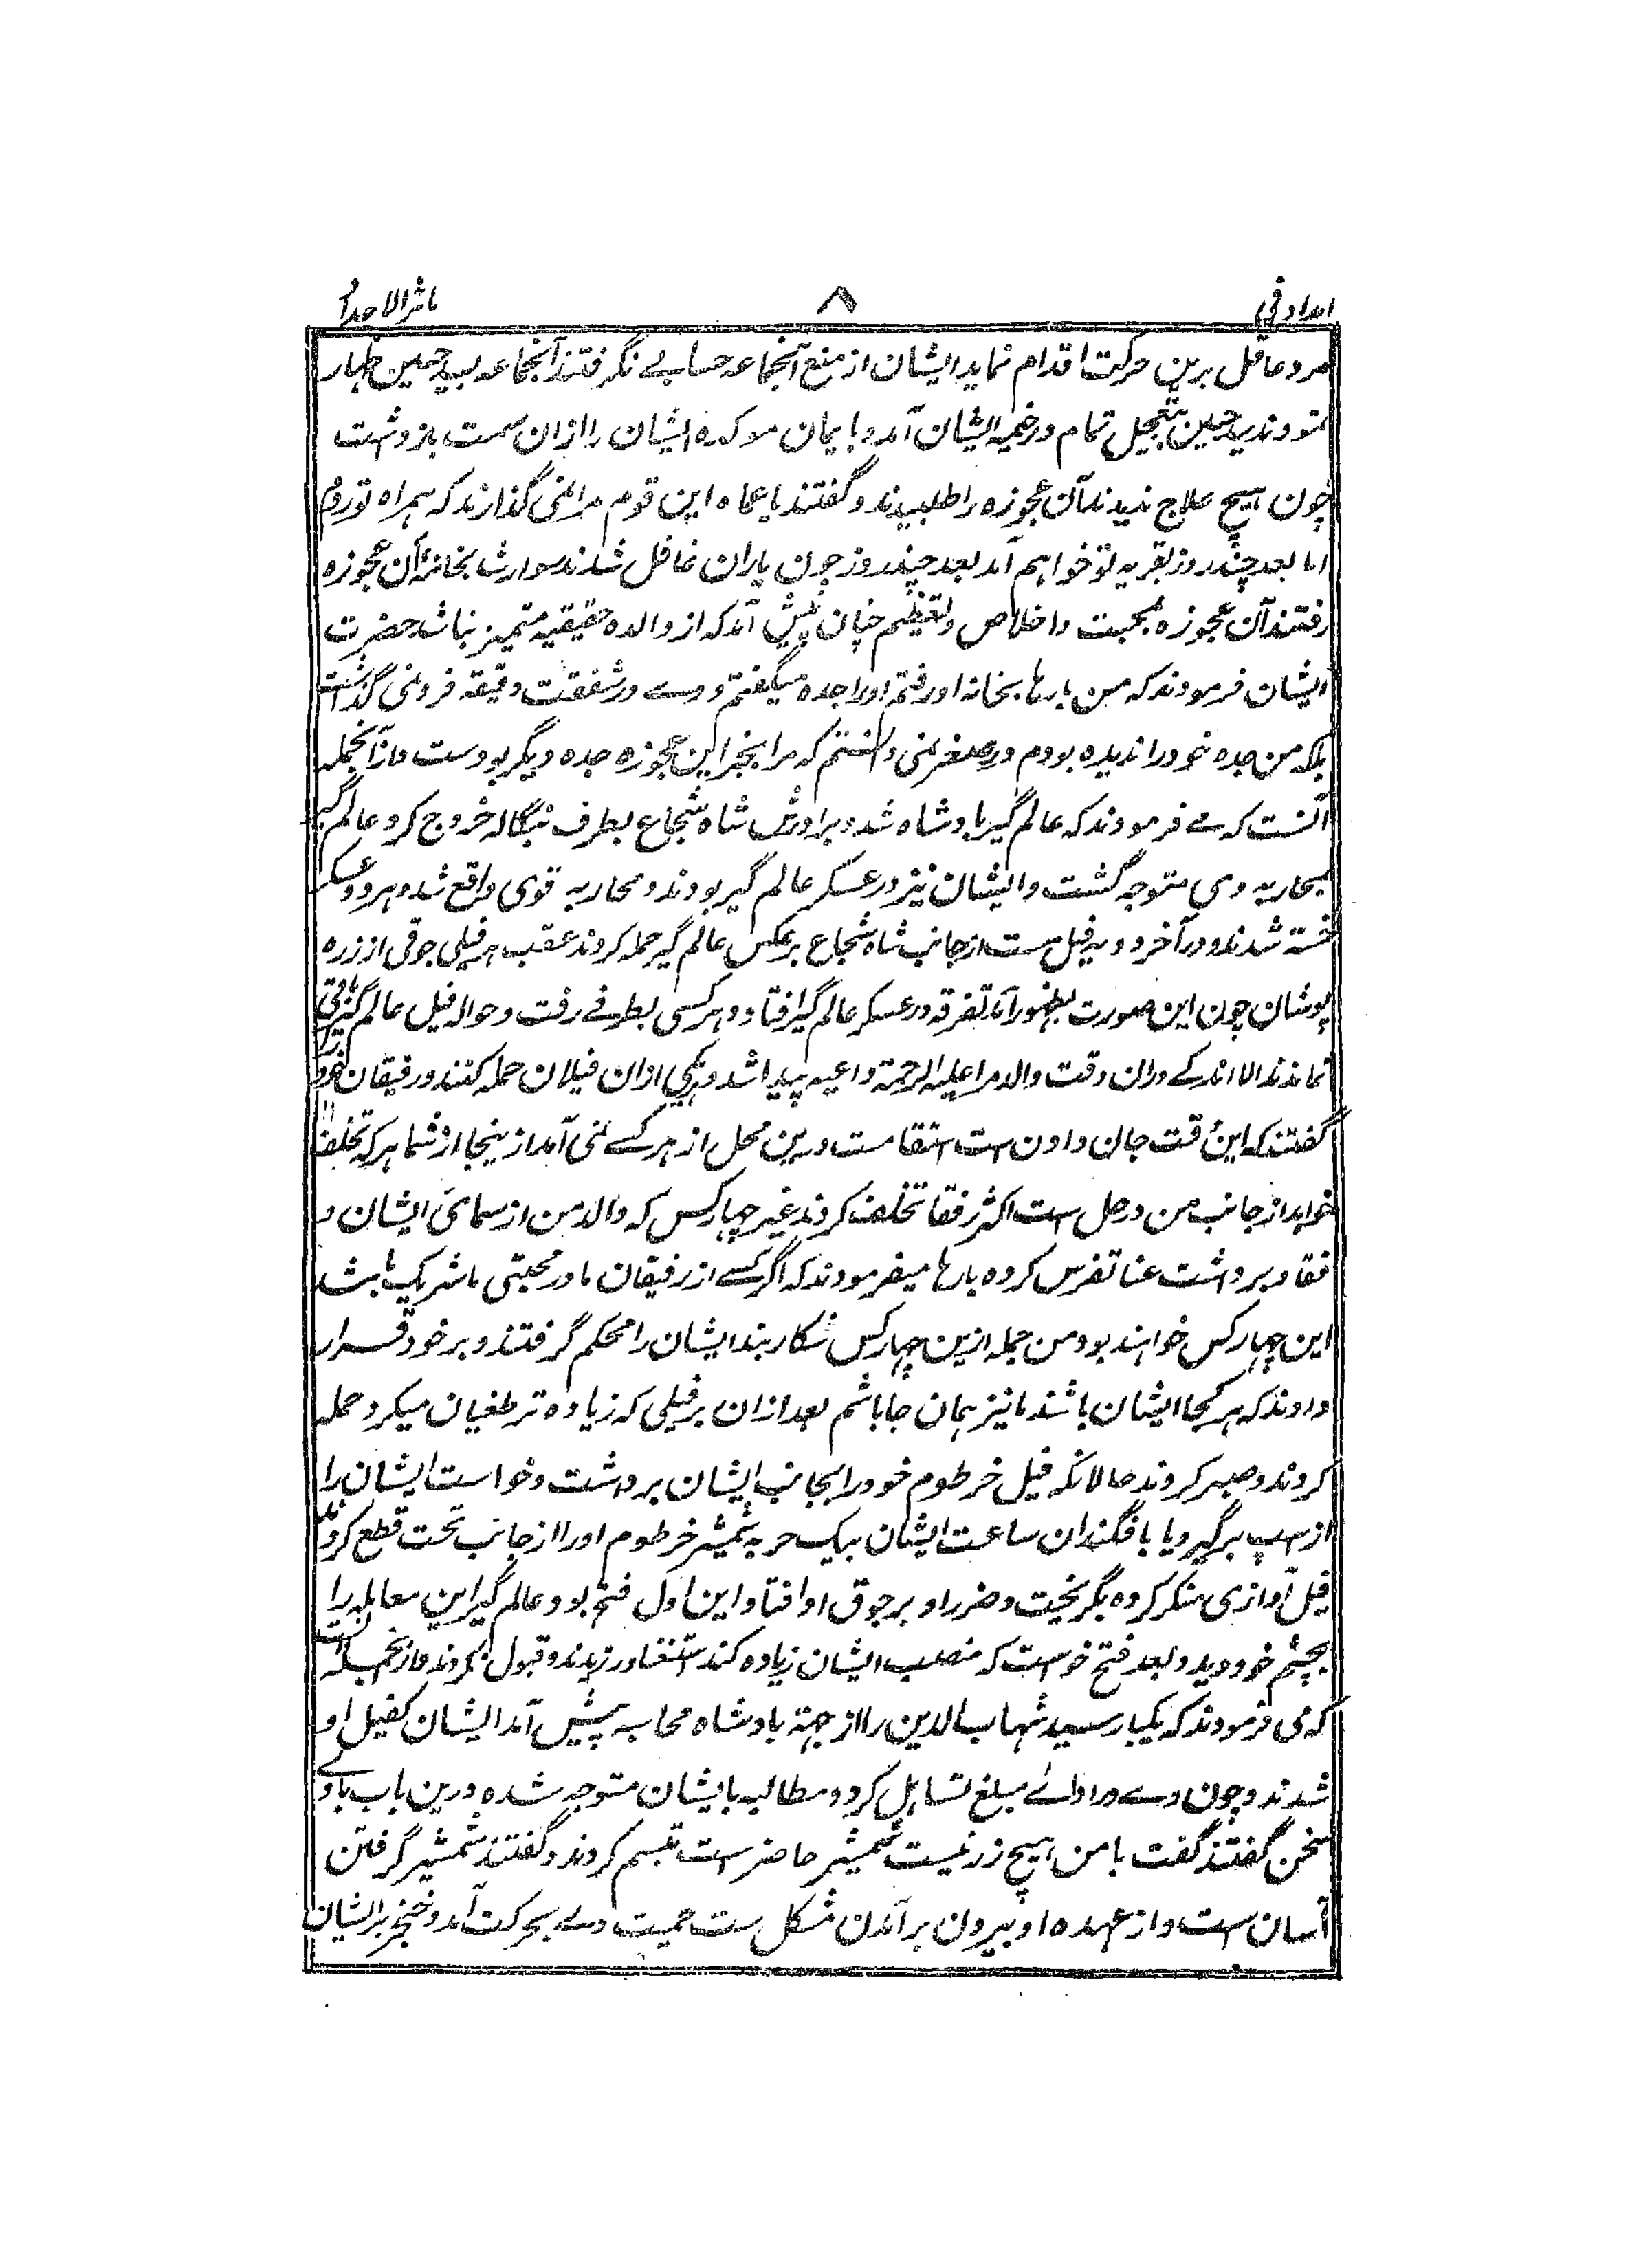 امداد فی ۸ ماثر الاجداد
مرد عاقل برین حرکت اقدام نماید ایشان از منع آنجماعه حسابے نگرفتند آنجماعه بسید حسین اظهار
نمودند سید حسین بتعجیل تمام در خیمه ایشان آمد و بایمان موکده ایشان را ازان سمت بازداشت
چون هیچ علاج ندیدند آن عجوزه را طلبیدند و گفتند یا عماه این قوم مرا نمی گذارند که همراه تو روم
اما بعد چند روز بقریه تو خواهم آمد بعد چند روز چون یاران غافل شدند سوار شد بخانهٔ آن عجوزه
رفتند آن عجوزه بمحبت و اخلاص و تعظیم چنان پیش آمد که از والده حقیقیه متمیز نباشد حضرت
ایشان فرمودند که من بارها بخانه او رفتم او را جده میگفتم و وے در شفقت دقیقه فرو نمی گذاشت
بلکه من جده خود را ندیده بودم در صغر سنی دانستم که مرا بجز این عجوزه جده دیگر بودست و ازآنجمله
آنست که مے فرمودند که عالم گیر بادشاه شد و برادرش شاه شجاع بطرف بنگاله خروج کرد عالم گیر
بمحاربه وی متوجه گشت و ایشان نیز در عسکر عالم گیر بودند و محاربه قوی واقع شد و هر دو عسکر
خسته شدند و در آخر دو سه فیل مست از جانب شاه شجاع بر عکس عالم گیر حمله کردند عقب هر فیلی جوقی از زره
پوشان چون این صورت بظهور آمد تفرقه در عسکر عالم گیر افتاد و هر کسی بطرفے رفت و حوالہ فیل عالم گیر باقی
نماندند الا اندکے دران وقت والد مرا علیه الرحمة داعیه پیدا شد و بیکی ازان فیلان حمله کنند و رفیقان خود را
گفتند که این وقت جان دادن ست استقامت درین محل از هر کسے نمی آمد ازینجا از شما هر که تخلف
خواهد از جانب من در حل ست اکثر رفقا تخلف کردند غیر چهار کس که والد من از سمای ایشان و
فقا و برداشت عنا تفرس کرده بارها میفرمودند که اگر کسے از رفیقان ما در محبتی ما شریک باشد
این چهار کس خواهند بود من جمله ازین چهار کس شکاربند ایشان را محکم گرفتند و بر خود قرار
دادند که هر کجا ایشان باشند ما نیز همان جا باشم بعد ازان بر فیلی که زیاده تر طغیان میکرد حمله
کردند و صبر کردند حالانکه فیل خرطوم خود را بجانب ایشان برداشت و خواست ایشان را
از اسپ برگیرد یا بافگند ان ساعت ایشان بیک حربه شمشیر خرطوم او را از جانب تحت قطع کردند
فیل آوازی منکر کرده بگریخت و ضرر او بر جوق او افتاد و این اول فتح بود عالم گیر این معامله را
بچشم خود دید و بعد فتح خواست که منصب ایشان زیاده کند استغنا ورزیدند و قبول نکردند و ازنجمله آنست
که می فرمودند که یکبار سید شهاب الدین را از جهة بادشاه محاسبه پیش آمد ایشان کفیل او
شدند و چون وے در اداے مبلغ تساهل کرد و مطالبه بایشان متوجه شده درین باب باوے
سخن گفتند گفت با من هیچ زر نیست شمشیر حاضر ست تبسم کردند و گفتند شمشیر گرفتن
آسان ست و از عهده او بیرون برآمدن مشکل ست حمیت وے بحرکت آمد و خنجر بر ایشان